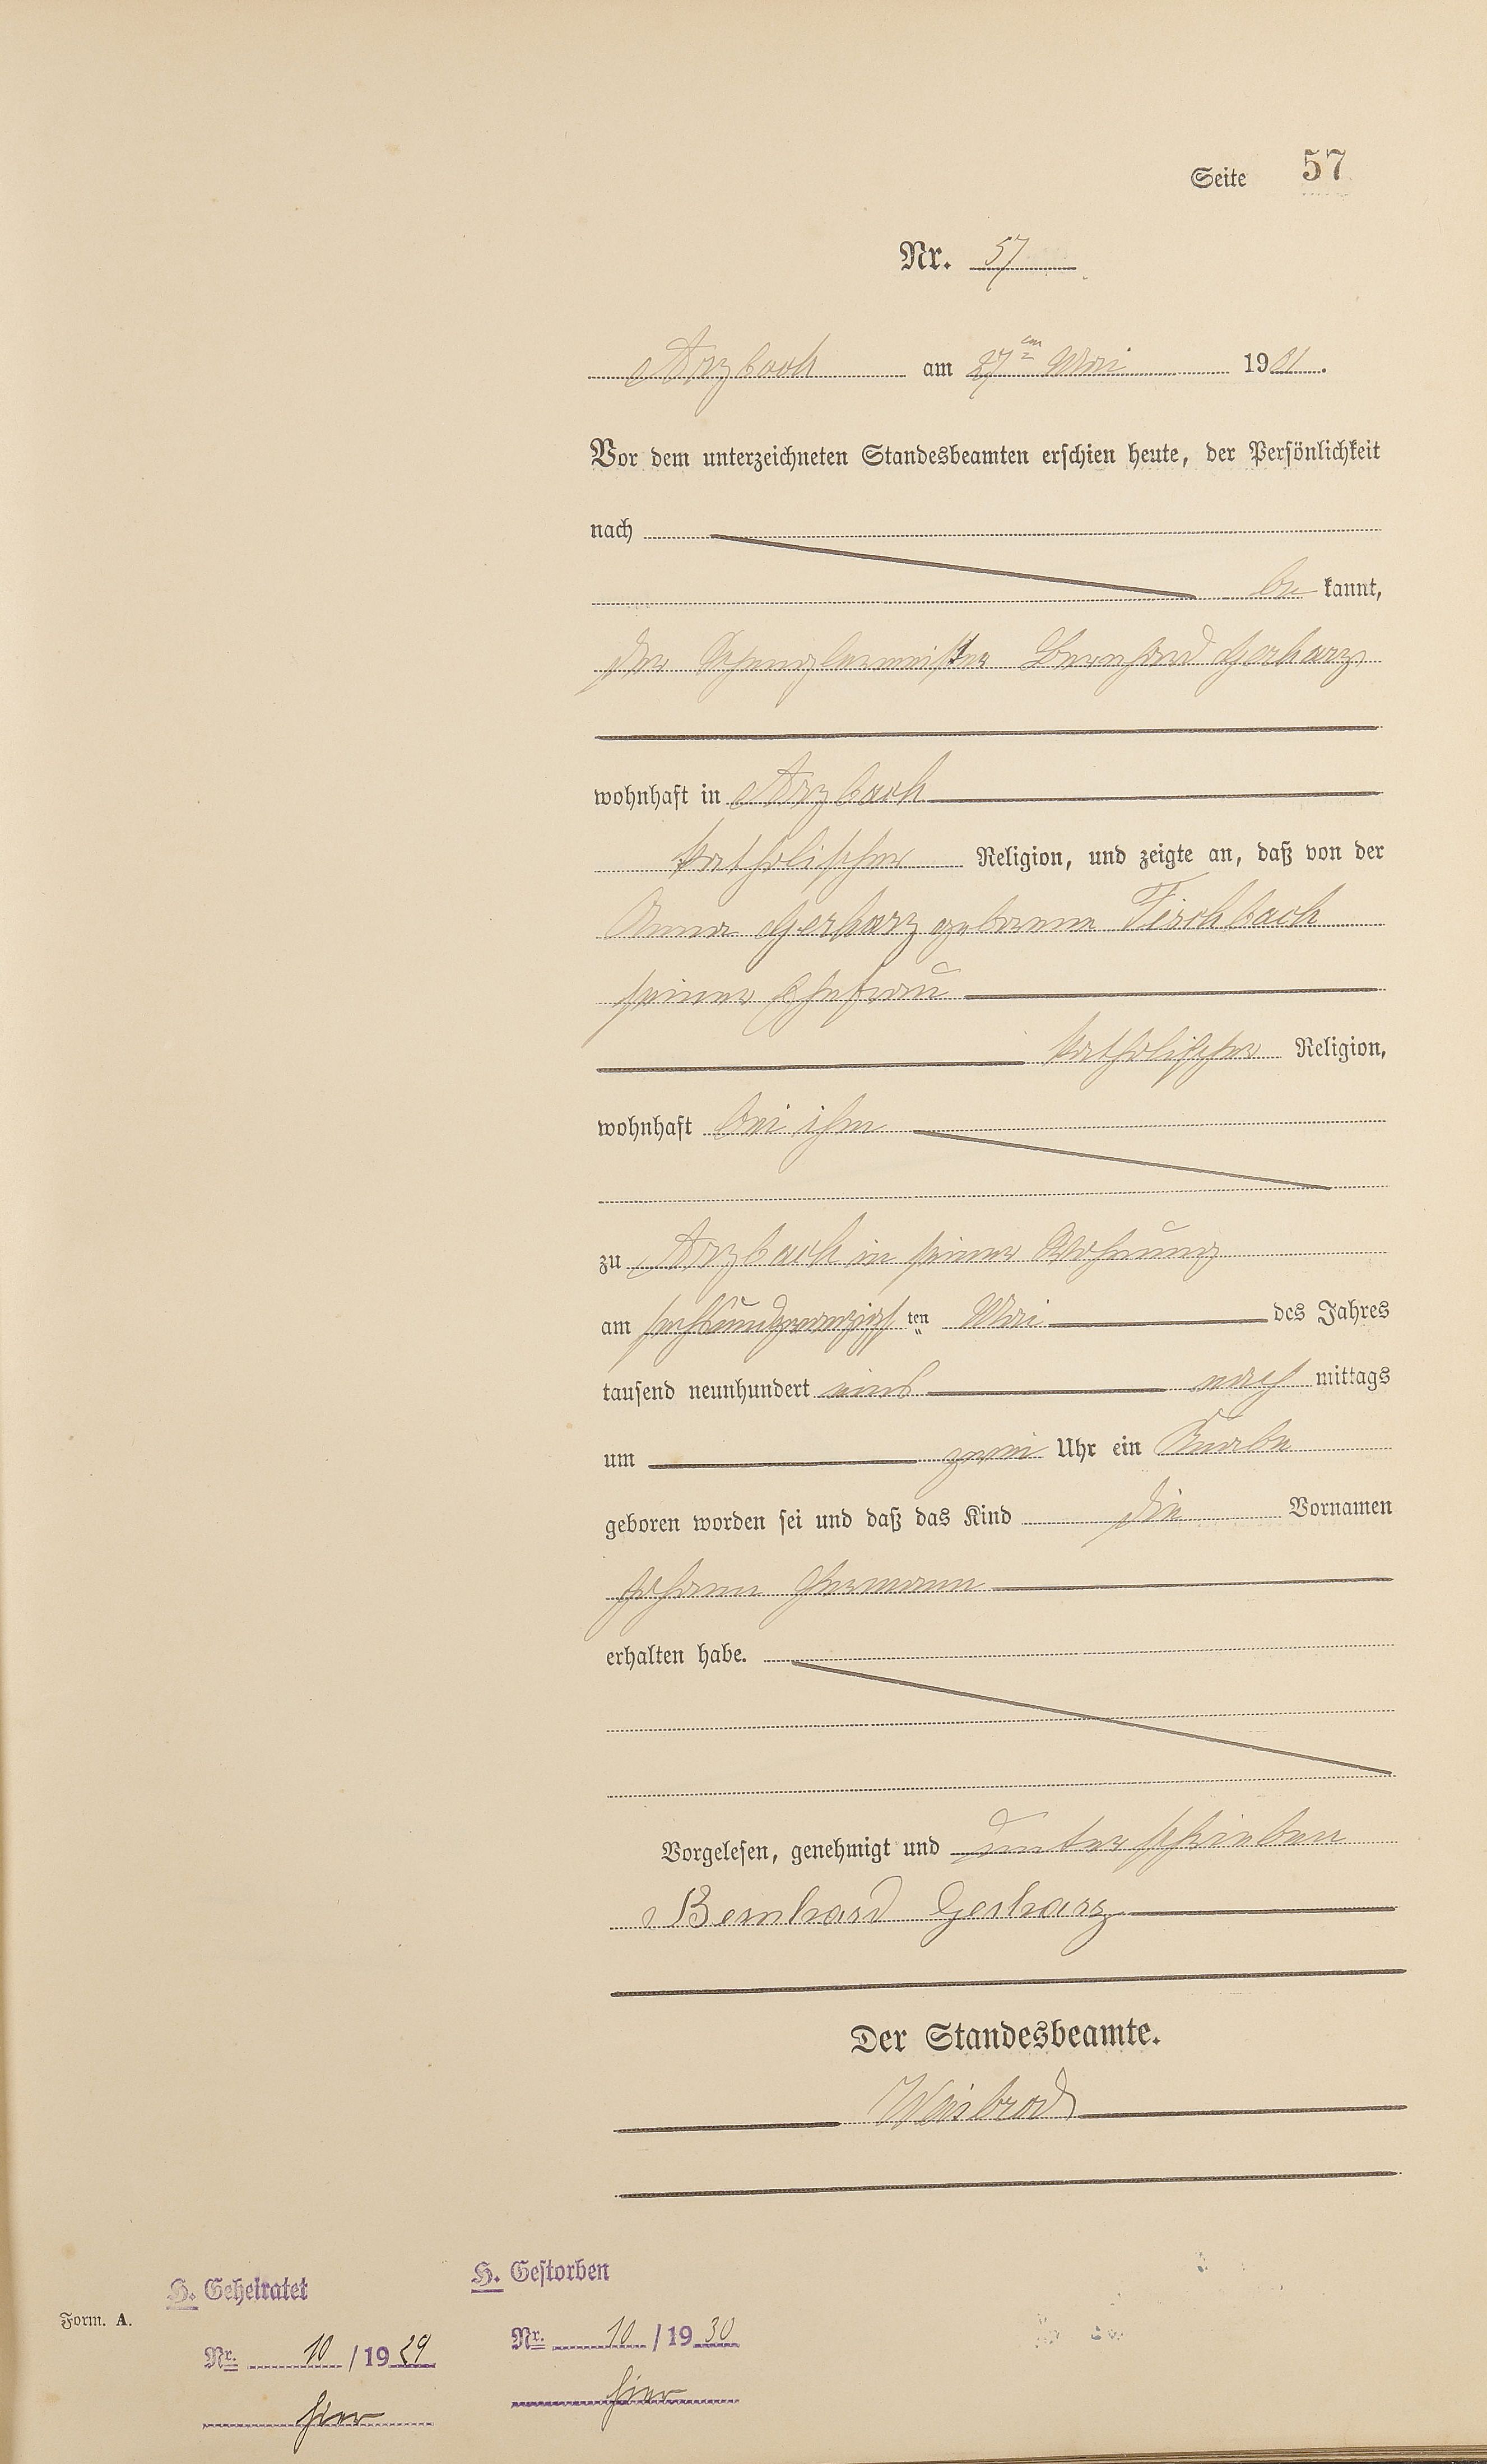 Seite 57
Nr. 57
Arzbach am 27ten Mai 1901.
Vor dem unterzeichneten Standesbeamten erschien heute, der Persönlichkeit
nach
be kannt,
der Spenglermeister Bernhard Gerharz
wohnhaft in Arzbach
katholischer Religion, und zeigte an, daß von der
Anna Gerharz geborenen Fischbach
seiner Ehefrau
katholischer Religion,
wohnhaft bei ihm
zu Arzbach in seiner Wohnung
am sechsundzwanzigsten Mai des Jahres
tausend neunhundert eins nach mittags
um zwei Uhr ein Knabe
geboren worden sei und daß das Kind die Vornamen
Johann Hermann
erhalten habe.
Vorgelesen, genehmigt und unterschrieben
Bernhard Gerharz
Der Standesbeamte.
Weisbrod
H. Geheiratet
Nr. 10 / 19 29
hier
H. Gestorben
Nr. 10 / 19 30
hier
Form. A.